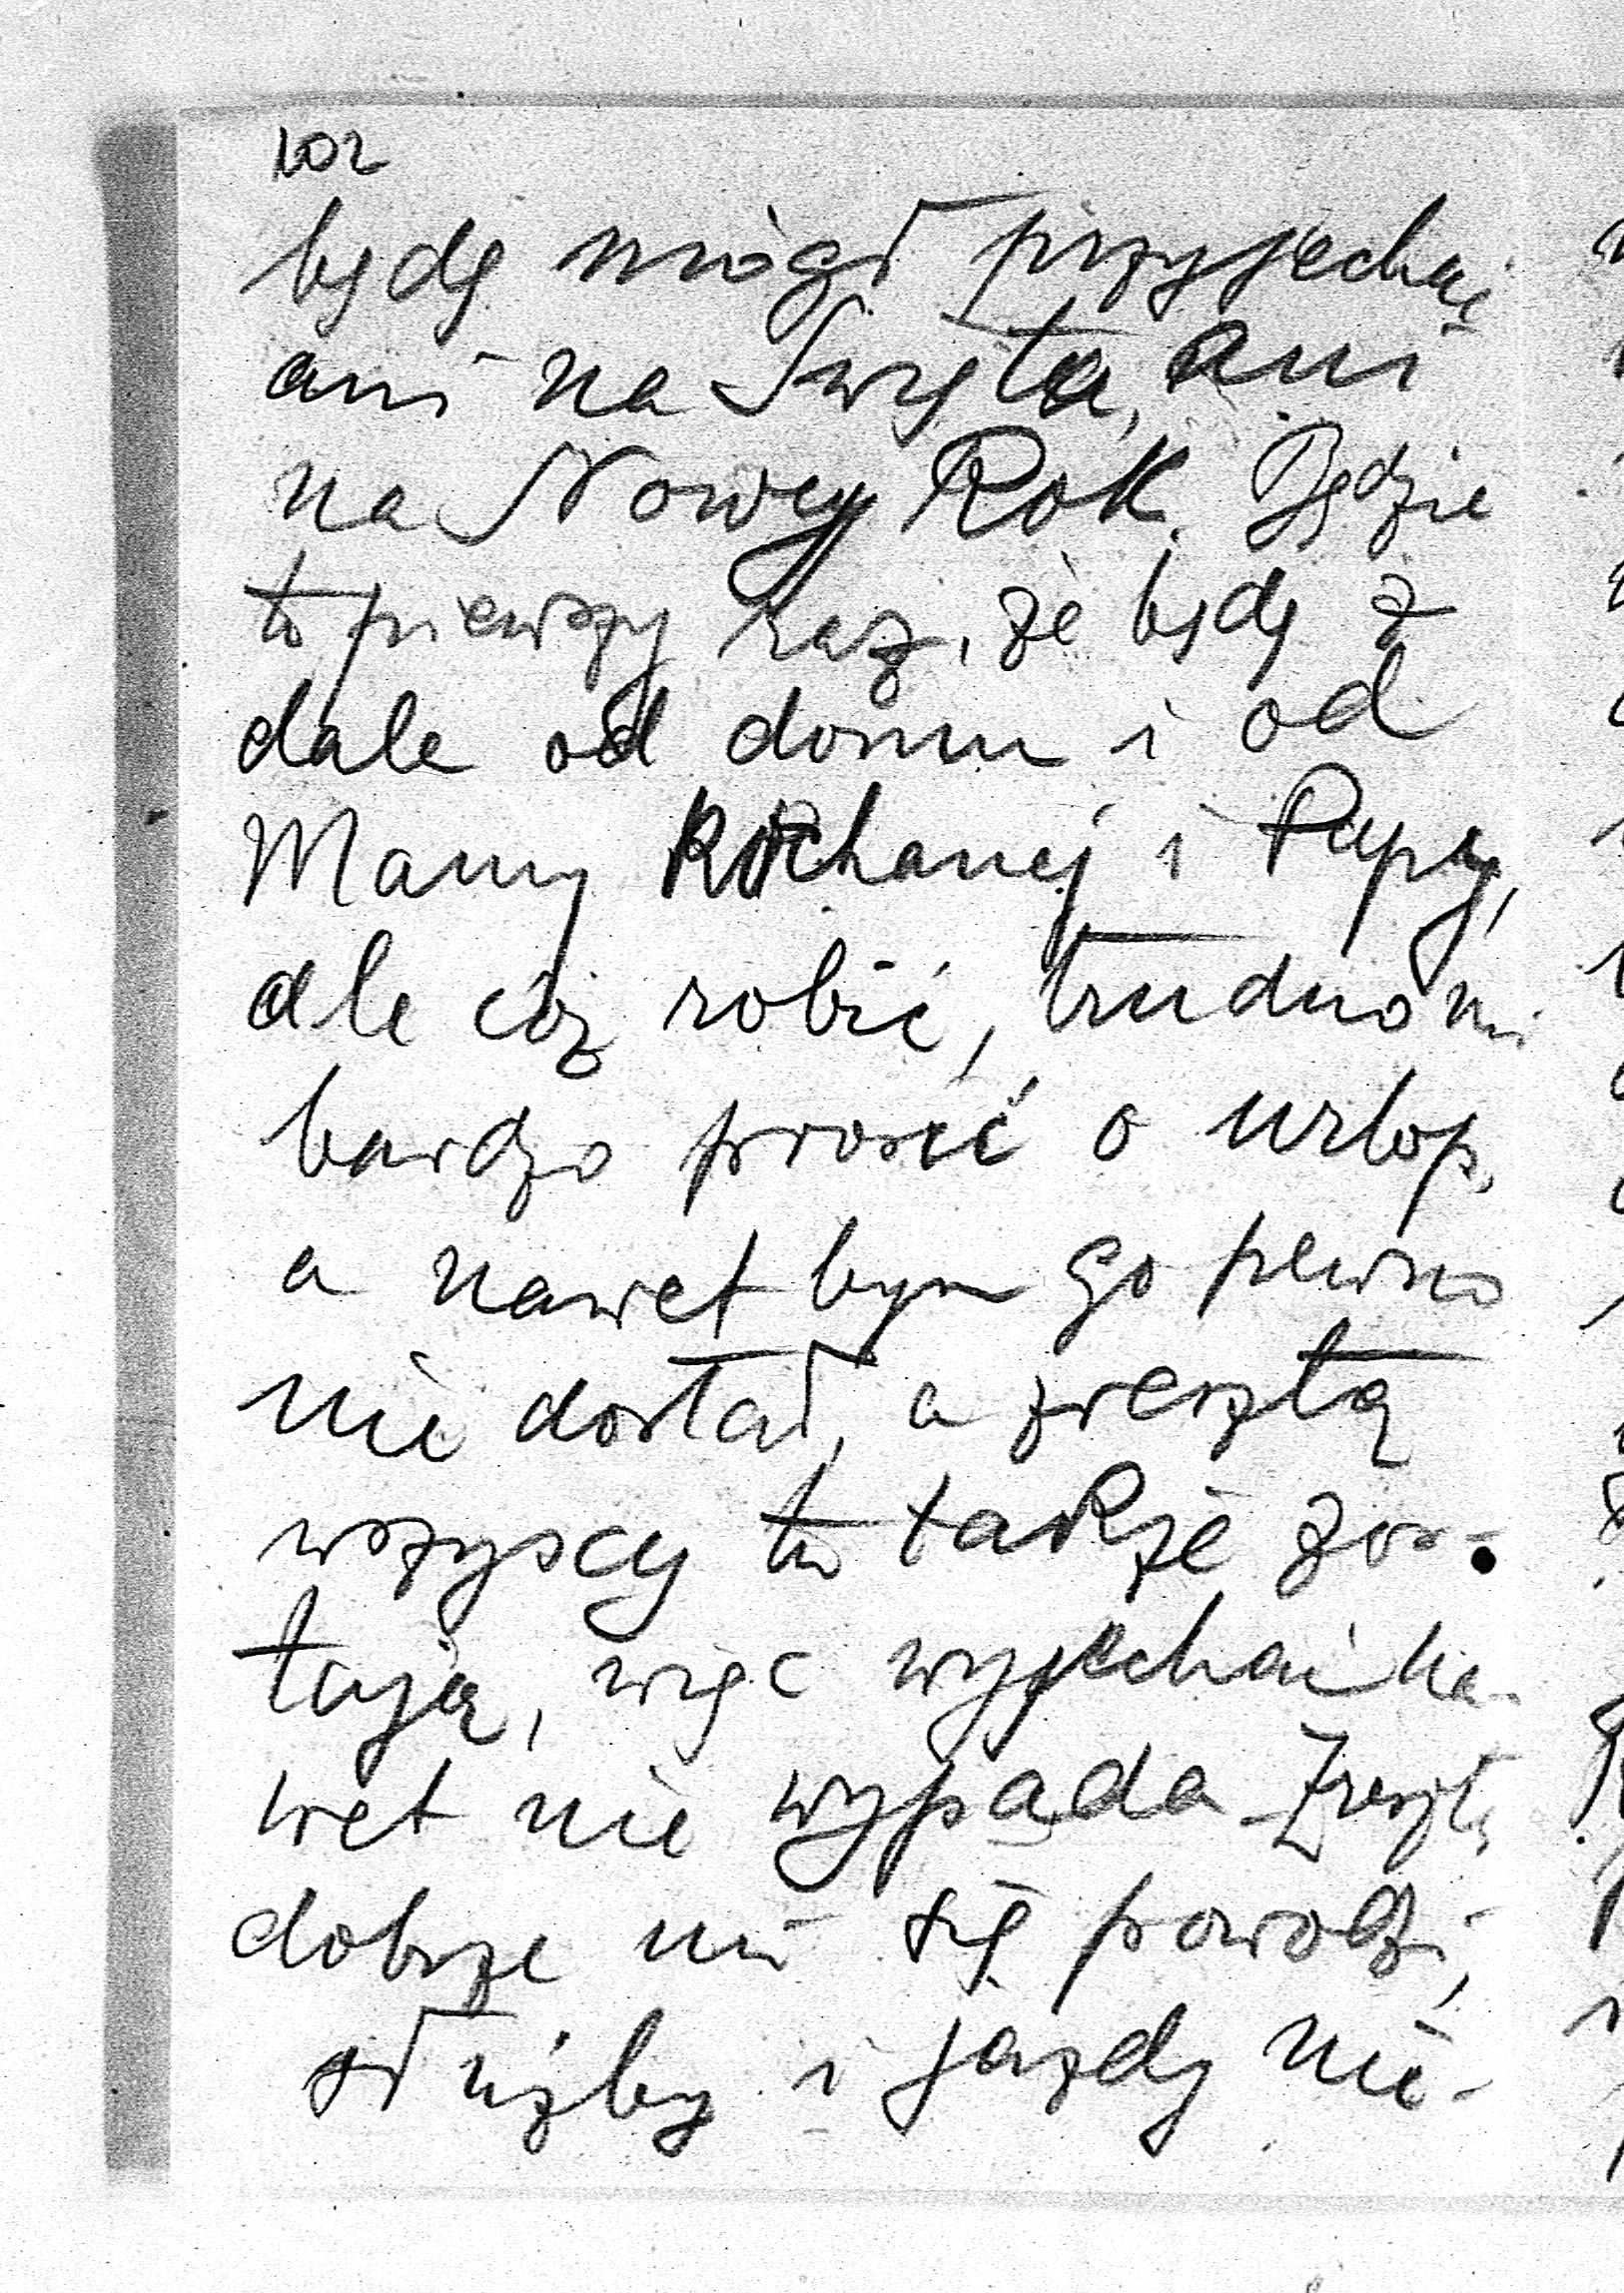 102
będę mógł przyjechać
ani na Święta, ani
na Nowy Rok. Będzie
to pierwszy raz, że będę z
dale od domu i od
Mamy Kochanej i Papy,
ale cóż robić, trudno mi
bardzo prosić o urlop,
a nawet bym go pewno
nie dostał, a zresztą
wszyscy tu także zos-
tają, więc wyjechać na-
wet nie wypada. Zresztą
dobrze mi się powodzi,
służby i jazdy nie-